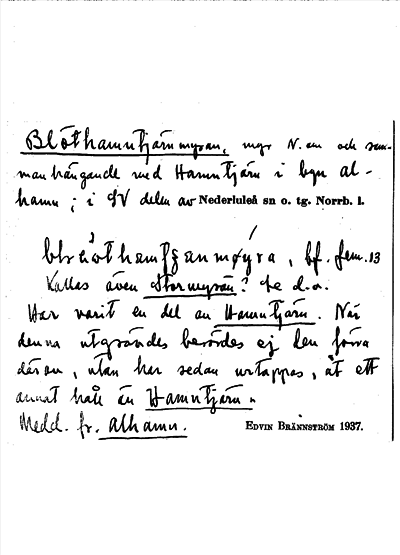 Blöthamntjärnmyran, myr N. om och sam-
manhängande med Hamntjärn i byn Al-
hamn ; i SV delen av Nederluleå sn o. tg. Norrb. l.
bf. fem. 13
Kallas även Stormyran? Se d.o.
Har varit en del av Hamntjärn. När
denna utgrävdes berördes ej den förra
därav, utan har sedan urtappas, åt ett
annat håll än Hamntjärn.
Medd. fr. Alhamn.
EDVIN BRÄNNSTRÖM 1937.